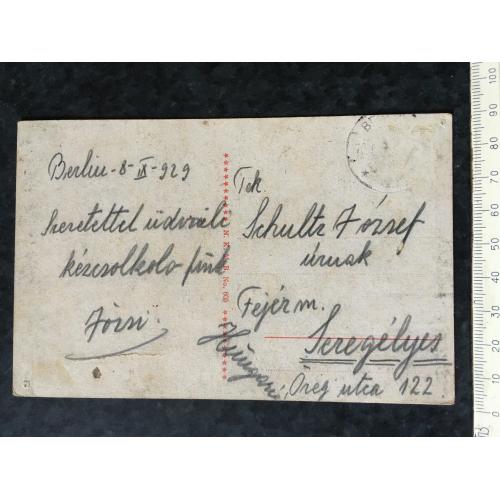 Berlin - 8 - IX - 929
Szeretettel üdvözli
kézcsolkoló fiuk
Józsi.
Tek.
Schultz József
úrnak
Fejér m.
Seregélyes
Öreg utca 122
No. 600
100
90
80
70
60
50
40
30
20
10